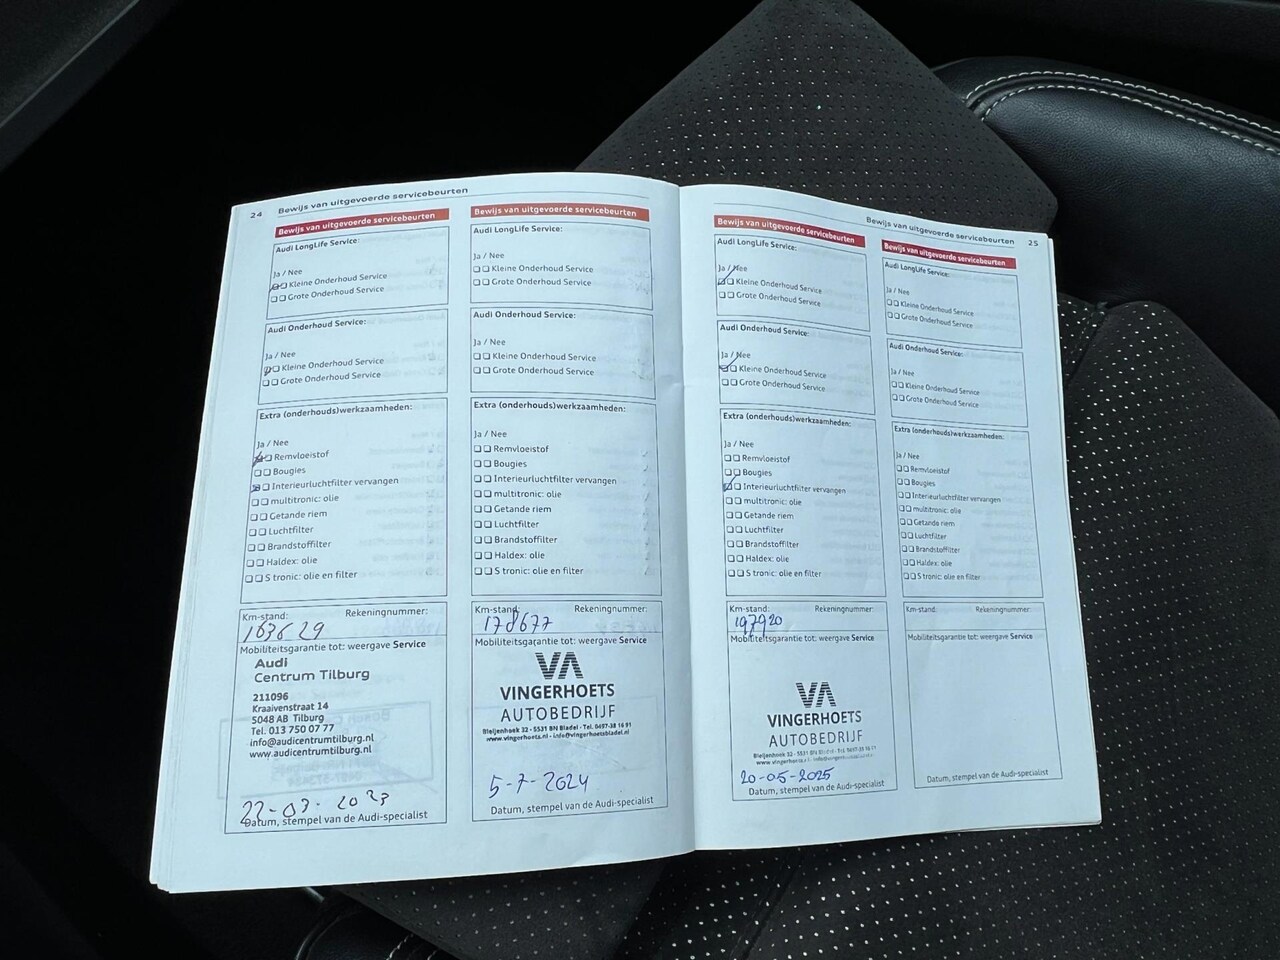 24 Bewijs van uitgevoerde servicebeurten
Bewijs van uitgevoerde servicebeurten
Audi LongLife Service:
Ja / Nee
Kleine Onderhoud Service
Grote Onderhoud Service
Audi Onderhoud Service:
Ja / Nee
Kleine Onderhoud Service
Grote Onderhoud Service
Extra (onderhouds)werkzaamheden:
Ja / Nee
Remvloeistof
Bougies
Interieurluchtfilter vervangen
multitronic: olie
Getande riem
Luchtfilter
Brandstoffilter
Haldex: olie
S tronic: olie en filter
Km-stand: Rekeningnummer:
163629
Mobiliteitsgarantie tot: weergave Service
Audi
Centrum Tilburg
211096
Kraaivenstraat 14
5048 AB Tilburg
Tel. 013 750 07 77
info@audicentrumtilburg.nl
www.audicentrumtilburg.nl
22-03-2023
Datum, stempel van de Audi-specialist
Bewijs van uitgevoerde servicebeurten
Audi LongLife Service:
Ja / Nee
Kleine Onderhoud Service
Grote Onderhoud Service
Audi Onderhoud Service:
Ja / Nee
Kleine Onderhoud Service
Grote Onderhoud Service
Extra (onderhouds)werkzaamheden:
Ja / Nee
Remvloeistof
Bougies
Interieurluchtfilter vervangen
multitronic: olie
Getande riem
Luchtfilter
Brandstoffilter
Haldex: olie
S tronic: olie en filter
Km-stand: Rekeningnummer:
178677
Mobiliteitsgarantie tot: weergave Service
VA
VINGERHOETS
AUTOBEDRIJF
Bleijenhoek 32 - 5531 BN Bladel - Tel. 0497-38 16 91
www.vingerhoets.nl - info@vingerhoetsbladel.nl
5-7-2024
Datum, stempel van de Audi-specialist
Bewijs van uitgevoerde servicebeurten 25
Bewijs van uitgevoerde servicebeurten
Audi LongLife Service:
Ja / Nee
Kleine Onderhoud Service
Grote Onderhoud Service
Audi Onderhoud Service:
Ja / Nee
Kleine Onderhoud Service
Grote Onderhoud Service
Extra (onderhouds)werkzaamheden:
Ja / Nee
Remvloeistof
Bougies
Interieurluchtfilter vervangen
multitronic: olie
Getande riem
Luchtfilter
Brandstoffilter
Haldex: olie
S tronic: olie en filter
Km-stand: Rekeningnummer:
197920
Mobiliteitsgarantie tot: weergave Service
VA
VINGERHOETS
AUTOBEDRIJF
Bleijenhoek 32 - 5531 BN Bladel - Tel. 0497-38 16 91
20-05-2025
Datum, stempel van de Audi-specialist
Bewijs van uitgevoerde servicebeurten
Audi LongLife Service:
Ja / Nee
Kleine Onderhoud Service
Grote Onderhoud Service
Audi Onderhoud Service:
Ja / Nee
Kleine Onderhoud Service
Grote Onderhoud Service
Extra (onderhouds)werkzaamheden:
Ja / Nee
Remvloeistof
Bougies
Interieurluchtfilter vervangen
multitronic: olie
Getande riem
Luchtfilter
Brandstoffilter
Haldex: olie
S tronic: olie en filter
Km-stand: Rekeningnummer:
Mobiliteitsgarantie tot: weergave Service
Datum, stempel van de Audi-specialist